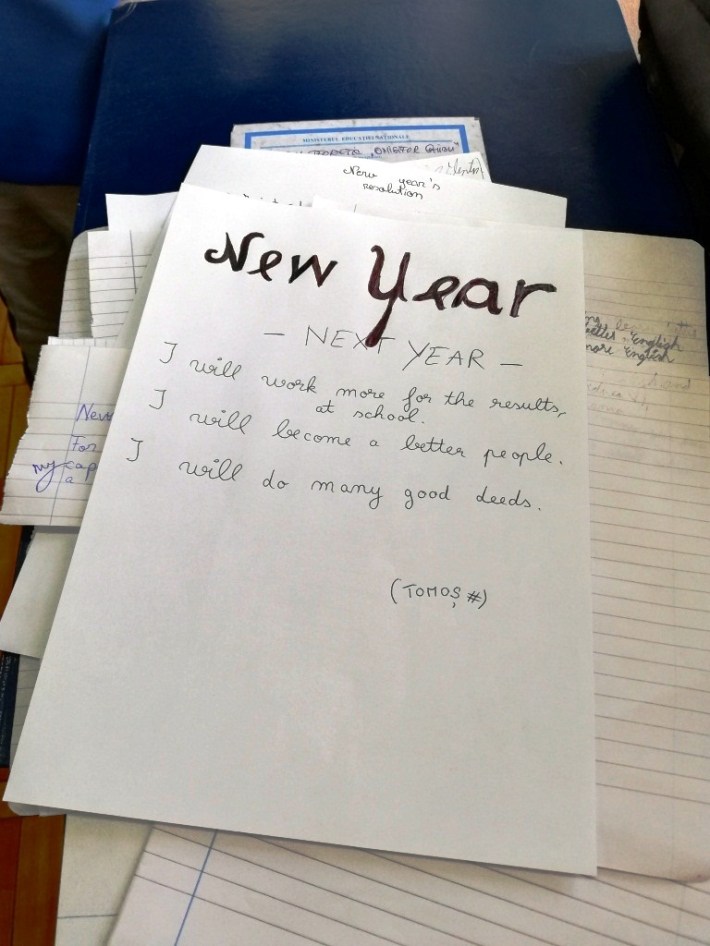 MINISTERUL EDUCAȚIEI NAȚIONALE
New year's
resolution
New Year
- NEXT YEAR -
I will work more for the results,
at school.
I will become a better people.
I will do many good deeds.
(TOMOȘ #)
New
For
my cap
a
English
more English